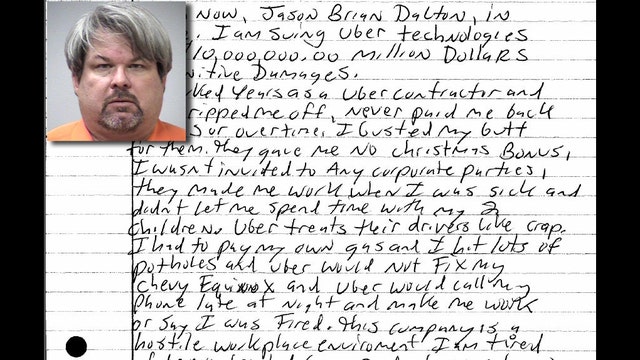 Now, Jason Brian Dalton, in
I am suing Uber technologies
10,000,000.00 million Dollars
itive Damages.
ked years as a Uber contractor and
ripped me off, never paid me back
s or overtime, I busted my butt
for them. They gave me no christmas Bonus,
I wasnt invited to Any corporate parties,
they made me work when I was sick and
didnt let me spend time with my 2
children. Uber treats their drivers like crap.
I had to pay my own gas and I hit lots of
potholes and Uber would not Fix my
Chevy Equinox and Uber would call my
phone late at night and make me work
or say I was Fired. This company is a
hostile workplace enviroment I am tired